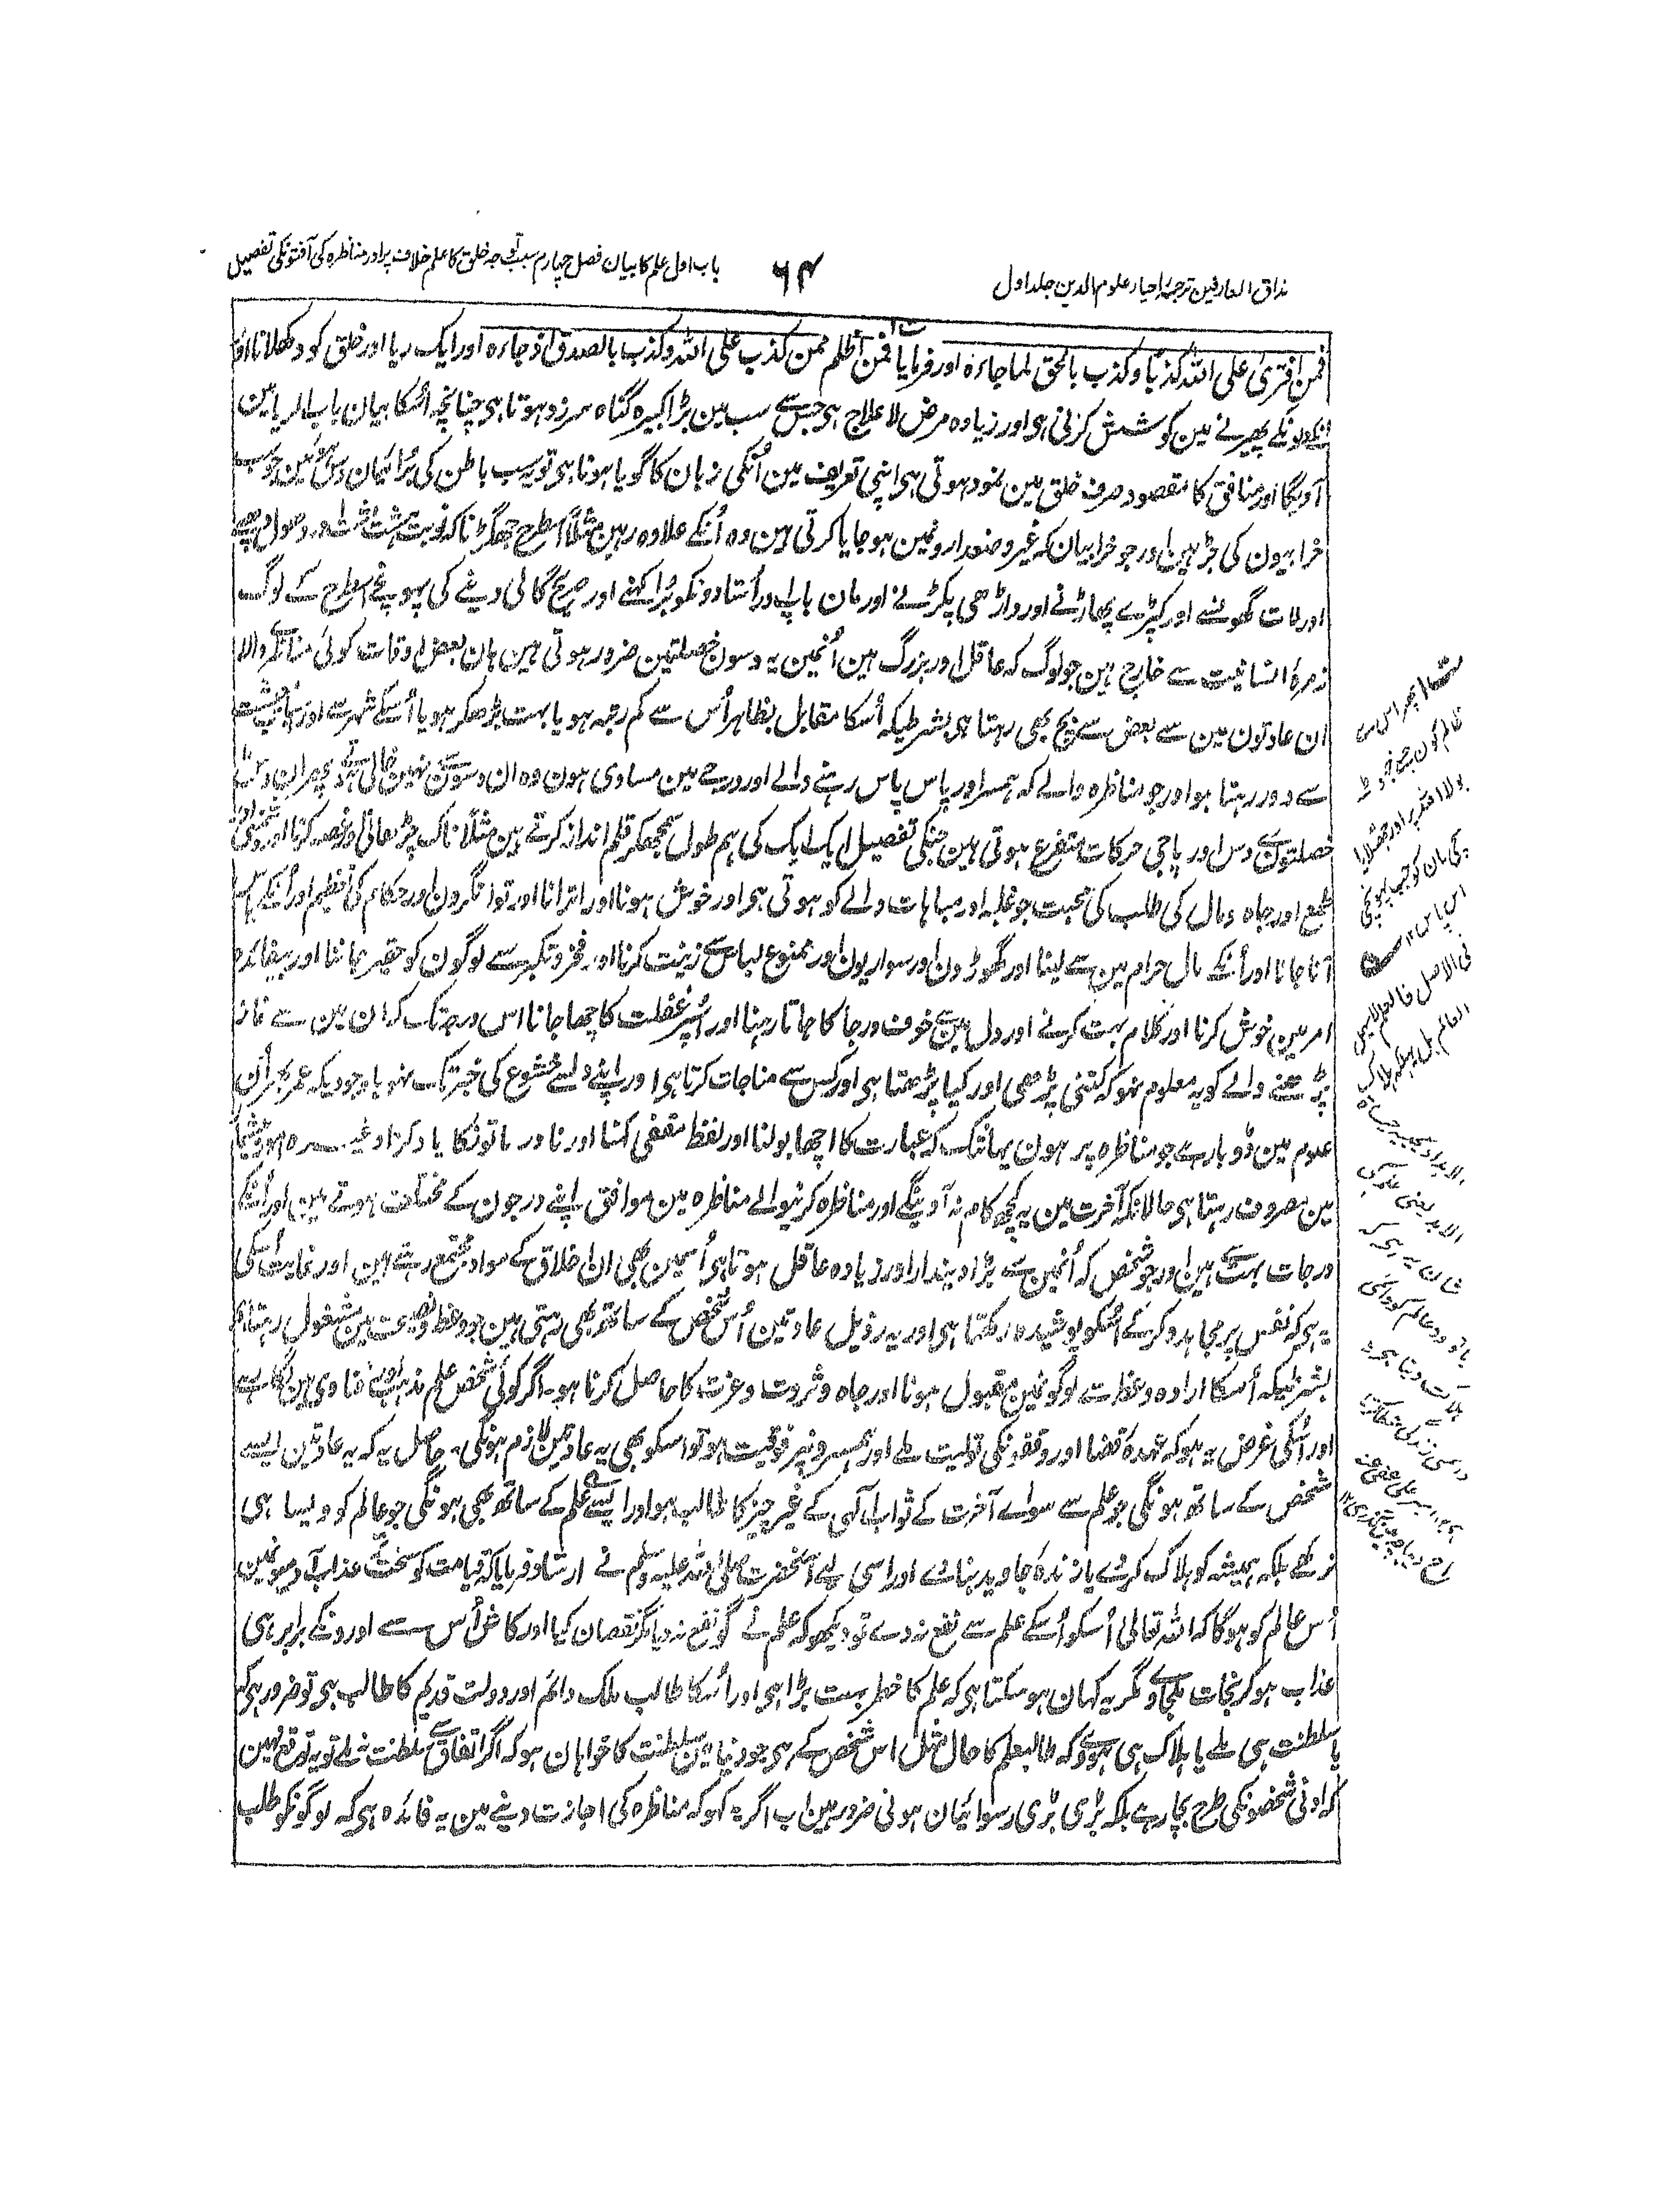 مذاق العارفین ترجمۂ احیاء علوم الدین جلد اول
۶۴
باب اول علم کا بیان فصل چہارم سبب توجہ خلق کا علم خلاف پر اور مناظرہ کی آفتونکی تفصیل
فمن افتریٰ علی اللہ کذبًا وکذب بالحق لما جاءہ اور فرمایا فمن اظلم ممن کذب علی اللہ وکذب بالصدق اذ جاءہ اور ایک ریا اور خلق کو دکھلانا اور
انکے دلونکے پھیرنے مین کوشش کرنی ہی اور زیادہ مرض لا علاج ہی جس سے سب مین بڑا کبیرہ گناہ سرزد ہوتا ہی چنانچہ اسکا بیان باب الریا مین
آویگا اور منافق کا مقصود صرف خلق مین نمود ہوتی ہی اپنی تعریف مین اُنکی زبان کا گویا ہونا ہی تو یہ سب باطن کی برائیان دس ہوئین جو سب
خرابیون کی جڑ ہین اور جو خرابیان کہ غیر وضعدارونمین ہو جایا کرتی ہین وہ اُنکے علاوہ رہین مثلًا اسطرح جھگڑنا کہ نوبت مشت مشت اور دھول دھپے
اور لات گھونسے اور کپڑے پھاڑنے اور داڑھی پکڑنے اور مان باپ اور اُستادونکو بُرا کہنے اور صریح گالی دینے کی پہونچے اسطرح کے لوگ
زمرۂ انسانیت سے خارج ہین جو لوگ کہ عاقل اور بزرگ ہین اُنمین یہ دسون خصلتین ضرور ہوتی ہین ہان بعض اوقات کوئی مناظرہ والا
ان عادتون مین سے بعض سے بچ بھی رہتا ہی بشرطیکہ اُسکا مقابل بظاہر اُس سے کم رتبہ ہو یا بہت بڑھکر ہو یا اُسکے شہر سے اور معیشت
سے دور رہتا ہو اور جو مناظرہ والے کہ ہمسر اور پاس پاس رہنے والے اور درجے مین مساوی ہون وہ ان دسون سے نہین خالی رہتے پھر ان دس
خصلتون سے دس اور پاجی حرکات متفرع ہوتی ہین جنکی تفصیل ایک ایک کی ہم طول سمجھکر قلم انداز کرتے ہین مثلًا ناک چڑھانی اور غصہ کرنا اور دشمنی
طمع اور جاہ و مال کی طلب کی محبت جو غلبہ اور مباہات والے کو ہوتی ہی اور خوش ہونا اور اترانا اور توانگرون اور حکام کی تعظیم اور اُنکے پاس
آنا جانا اور اُنکے مال حرام مین سے لینا اور گھوڑون اور سواریون اور ممنوع لباس سے زینت کرنا اور فخر و تکبر سے لوگون کو حقیر جاننا اور بیفائدہ
امر مین خوض کرنا اور کلام بہت کرنے اور دل مین سے خوف و رجا کا جاتا رہنا اور اُسپر غفلت کا چھا جانا اس درجہ تک کہ ان مین سے نماز
پڑھنے والے کو یہ معلوم نہو کہ کتنی پڑھی اور کیا پڑھتا ہی اور کس سے مناجات کرتا ہی اور اپنے دلسے خشوع کی خبر تک نہو باوجودیکہ عمر بھر اُن
علوم مین ڈوبا رہے جو مناظرہ پر ہون یہانتک کہ عبارت کا اچھا بولنا اور لفظ مقفی کہنا اور نادر باتونکا یاد کرنا وغیرہ امور بیشمار
مین مصروف رہتا ہی حالانکہ آخرت مین یہ کچھ کام نہ آوینگے اور مناظرہ کرنیوالے مناظرہ مین موافق اپنے درجون کے مختلف ہوتے ہین اور اُنکے
درجات بہت سے ہین اور جو شخص کہ اُنمین سے بڑا دیندار اور زیادہ عاقل ہوتا ہی اُسمین بھی ان اخلاق کے مواد مجتمع رہتے ہین اور غایت اُسکی
یہ ہی کہ نفس پر مجاہدہ کرکے اُسکو پوشیدہ رکھتا ہی اور یہ رذیل عادتین اُس شخص کے ساتھ بھی رہتی ہین جو وعظ و نصیحت مین مشغول رہتا ہو
بشرطیکہ اُسکا ارادہ وعظ سے لوگونمین مقبول ہونا اور جاہ و ثروت و عزت کا حاصل کرنا ہو۔ اگر کوئی شخص علم مذہب اور فتاوی مین لگا رہے
اور اُسکی غرض یہ ہو کہ عہدۂ قضا اور وقفونکی تولیت ملے اور ہمسرونپر فوقیت ہو تو اسکو بھی یہ عادتین لازم ہونگی۔ حاصل یہ کہ یہ عادتین ایسے
شخص کے ساتھ ہونگی جو علم سے سواے آخرت کے ثواب الٰہی کے غیر چیز کا طالب ہو اور ایسے ہی علم کے ساتھ بھی ہونگی جو عالم کو ویسا ہی
نرکھے بلکہ ہمیشہ کو ہلاک کرے یا زندۂ جاوید بنادے اور اسی لیے آنحضرت صلی اللہ علیہ وسلم نے ارشاد فرمایا کہ قیامت کو سخت تر عذاب آدمیونمین
اُس عالم کو ہوگا کہ اللہ تعالی اُسکو اُسکے علم سے نفع ندے تو دیکھو کہ علم نے گو نفع نہ دیا مگر نقصان کیا اور کاش اُس سے اورونکے برابر ہی
عذاب ہو کر نجات ملجاوے مگر یہ کہان ہو سکتا ہی کہ علم کا خطر بہت بڑا ہی اور اُسکا طالب ملک دائم اور دولت قدیم کا طالب ہی تو ضرور ہی کہ
یا سلطنت ہی ملے یا ہلاک ہی ہووے کہ طالبعلم کا حال مثل اس شخص کے ہی جو دنیا مین سلطنت کا خواہان ہو کہ اگر اتفاق سے سلطنت نہ ملے تو یہ توقع نہین
کہ ادنی شخصونکی طرح بچا رہے بلکہ بڑی بڑی رسوائیان ہونی ضرور ہین اب اگر یہ کہو کہ مناظرہ کی اجازت دینے مین یہ فائدہ ہی کہ لوگونکو طلب
پھر اس سے
ظالم کون جسنے جھوٹ
بولا اللہ پر اور جھٹلایا
سچی بات کو جب پہونچی
اس پاس ۱۲
فی الاصل فالعلم لا یہمل
العالم بل یہلکہ ہلاک
الابد او یحییہ حیاۃ
الابد یعنی علم کی
شان یہ ہی کہ
یا تو وہ عالم کو دائمی
ہلاکت دیتا ہی
دائمی زندگی
امیر علی عفی عنہ